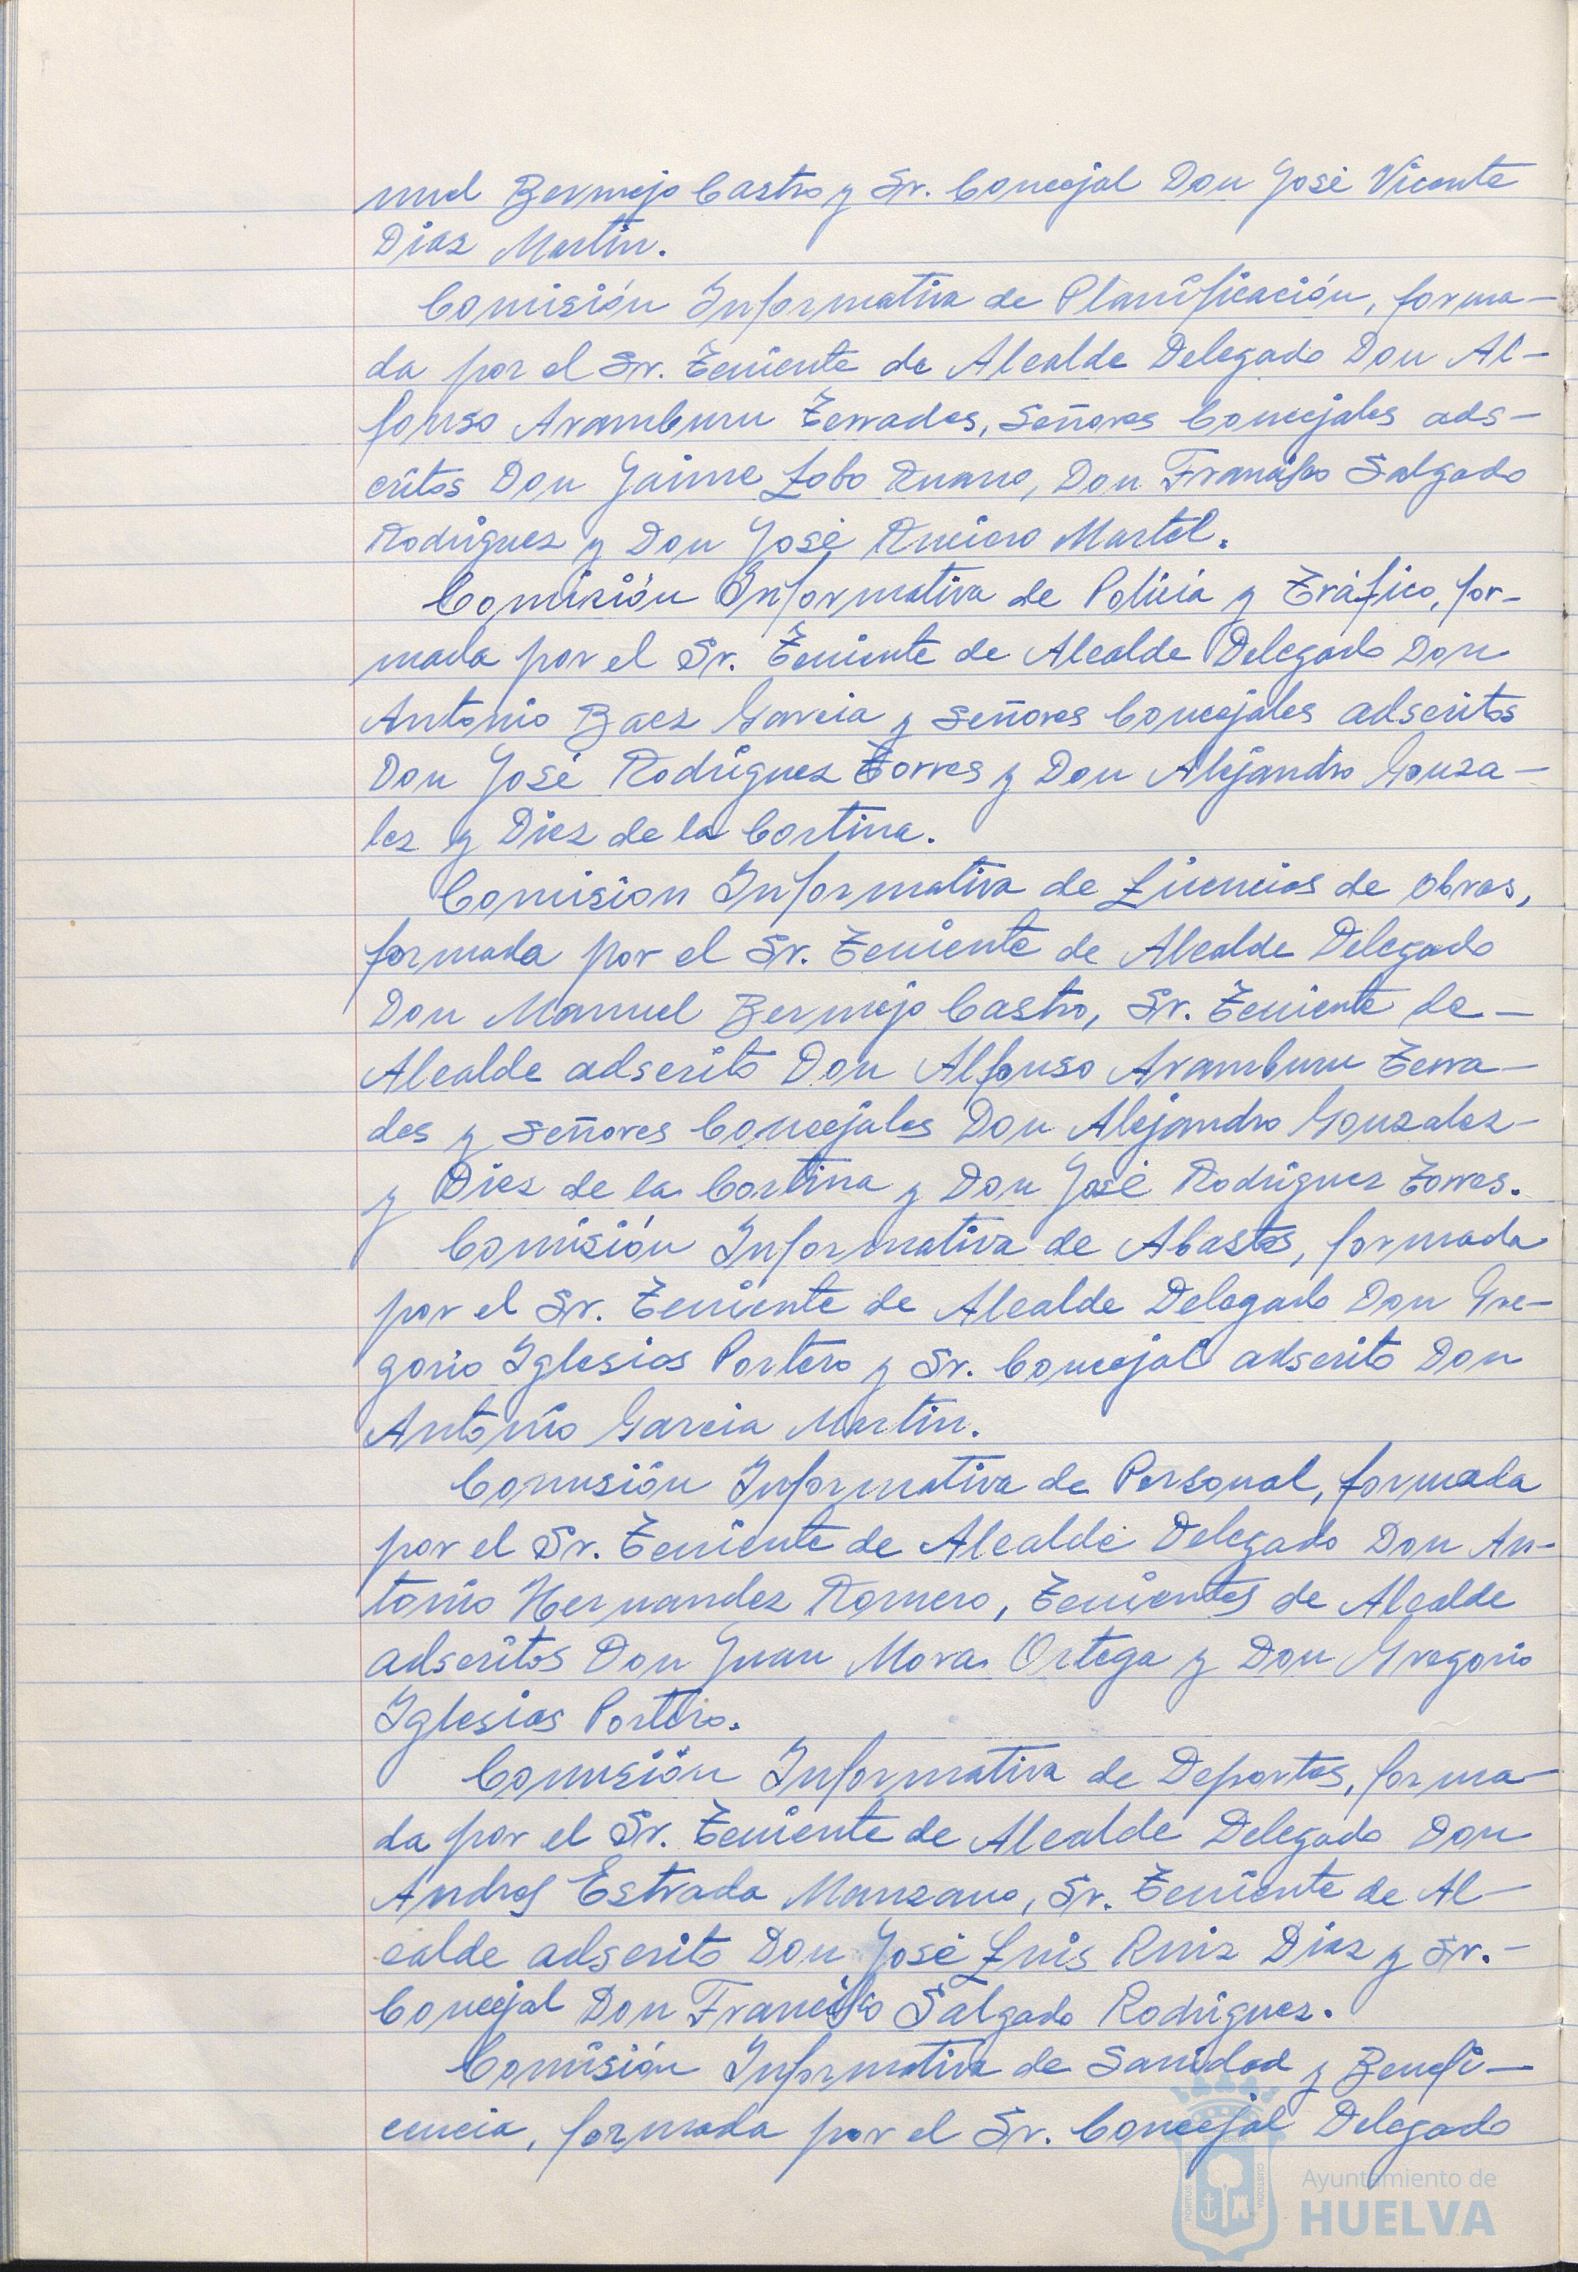 nuel Bermejo Castro y Sr. Concejal Don José Vicente
Diaz Martin.
Comisión Informativa de Planificación, forma-
da por el Sr. Teniente de Alcalde Delegado Don Al-
fonso Aramburu Terrades, Señores Concejales ads-
critos Don Jaime Lobo Ruano, Don Francisco Salgado
Rodriguez y Don José Ruciero Martel.
Comisión Informativa de Policia y Tráfico, for-
mada por el Sr. Teniente de Alcalde Delegado Don
Antonio Baez Garcia y Señores Concejales adscritos
Don José Rodriguez Torres y Don Alejandro Gonza-
lez y Diez de la Cortina.
Comision Informativa de Licencias de Obras,
formada por el Sr. Teniente de Alcalde Delegado
Don Manuel Bermejo Castro, Sr. Teniente de-
Alcalde adscrito Don Alfonso Aramburu Terra-
des y Señores Concejales Don Alejandro Gonzalez-
y Diez de la Cortina y Don José Rodriguez Torres.
Comisión Informativa de Abastos, formada
por el Sr. Teniente de Alcalde Delegado Don Gre-
gorio Iglesias Portero y Sr. Concejal adscrito Don
Antonio Garcia Martin.
Comisión Informativa de Personal, formada
por el Sr. Teniente de Alcalde Delegado Don An-
tonio Hernandez Romero, Tenientes de Alcalde
adscritos Don Juan Mora Ortega y Don Gregorio
Iglesias Portero.
Comisión Informativa de Deportes, forma-
da por el Sr. Teniente de Alcalde Delegado Don
Andres Estrada Manzano, Sr. Teniente de Al-
calde adscrito Don José Luis Ruiz Diaz y Sr.-
Concejal Don Francisco Salgado Rodriguez.
Comisión Informativa de Sanidad y Benefi-
cencia, formada por el Sr. Concejal Delegado
PORTUS CUSTODIA
Ayuntamiento de
HUELVA